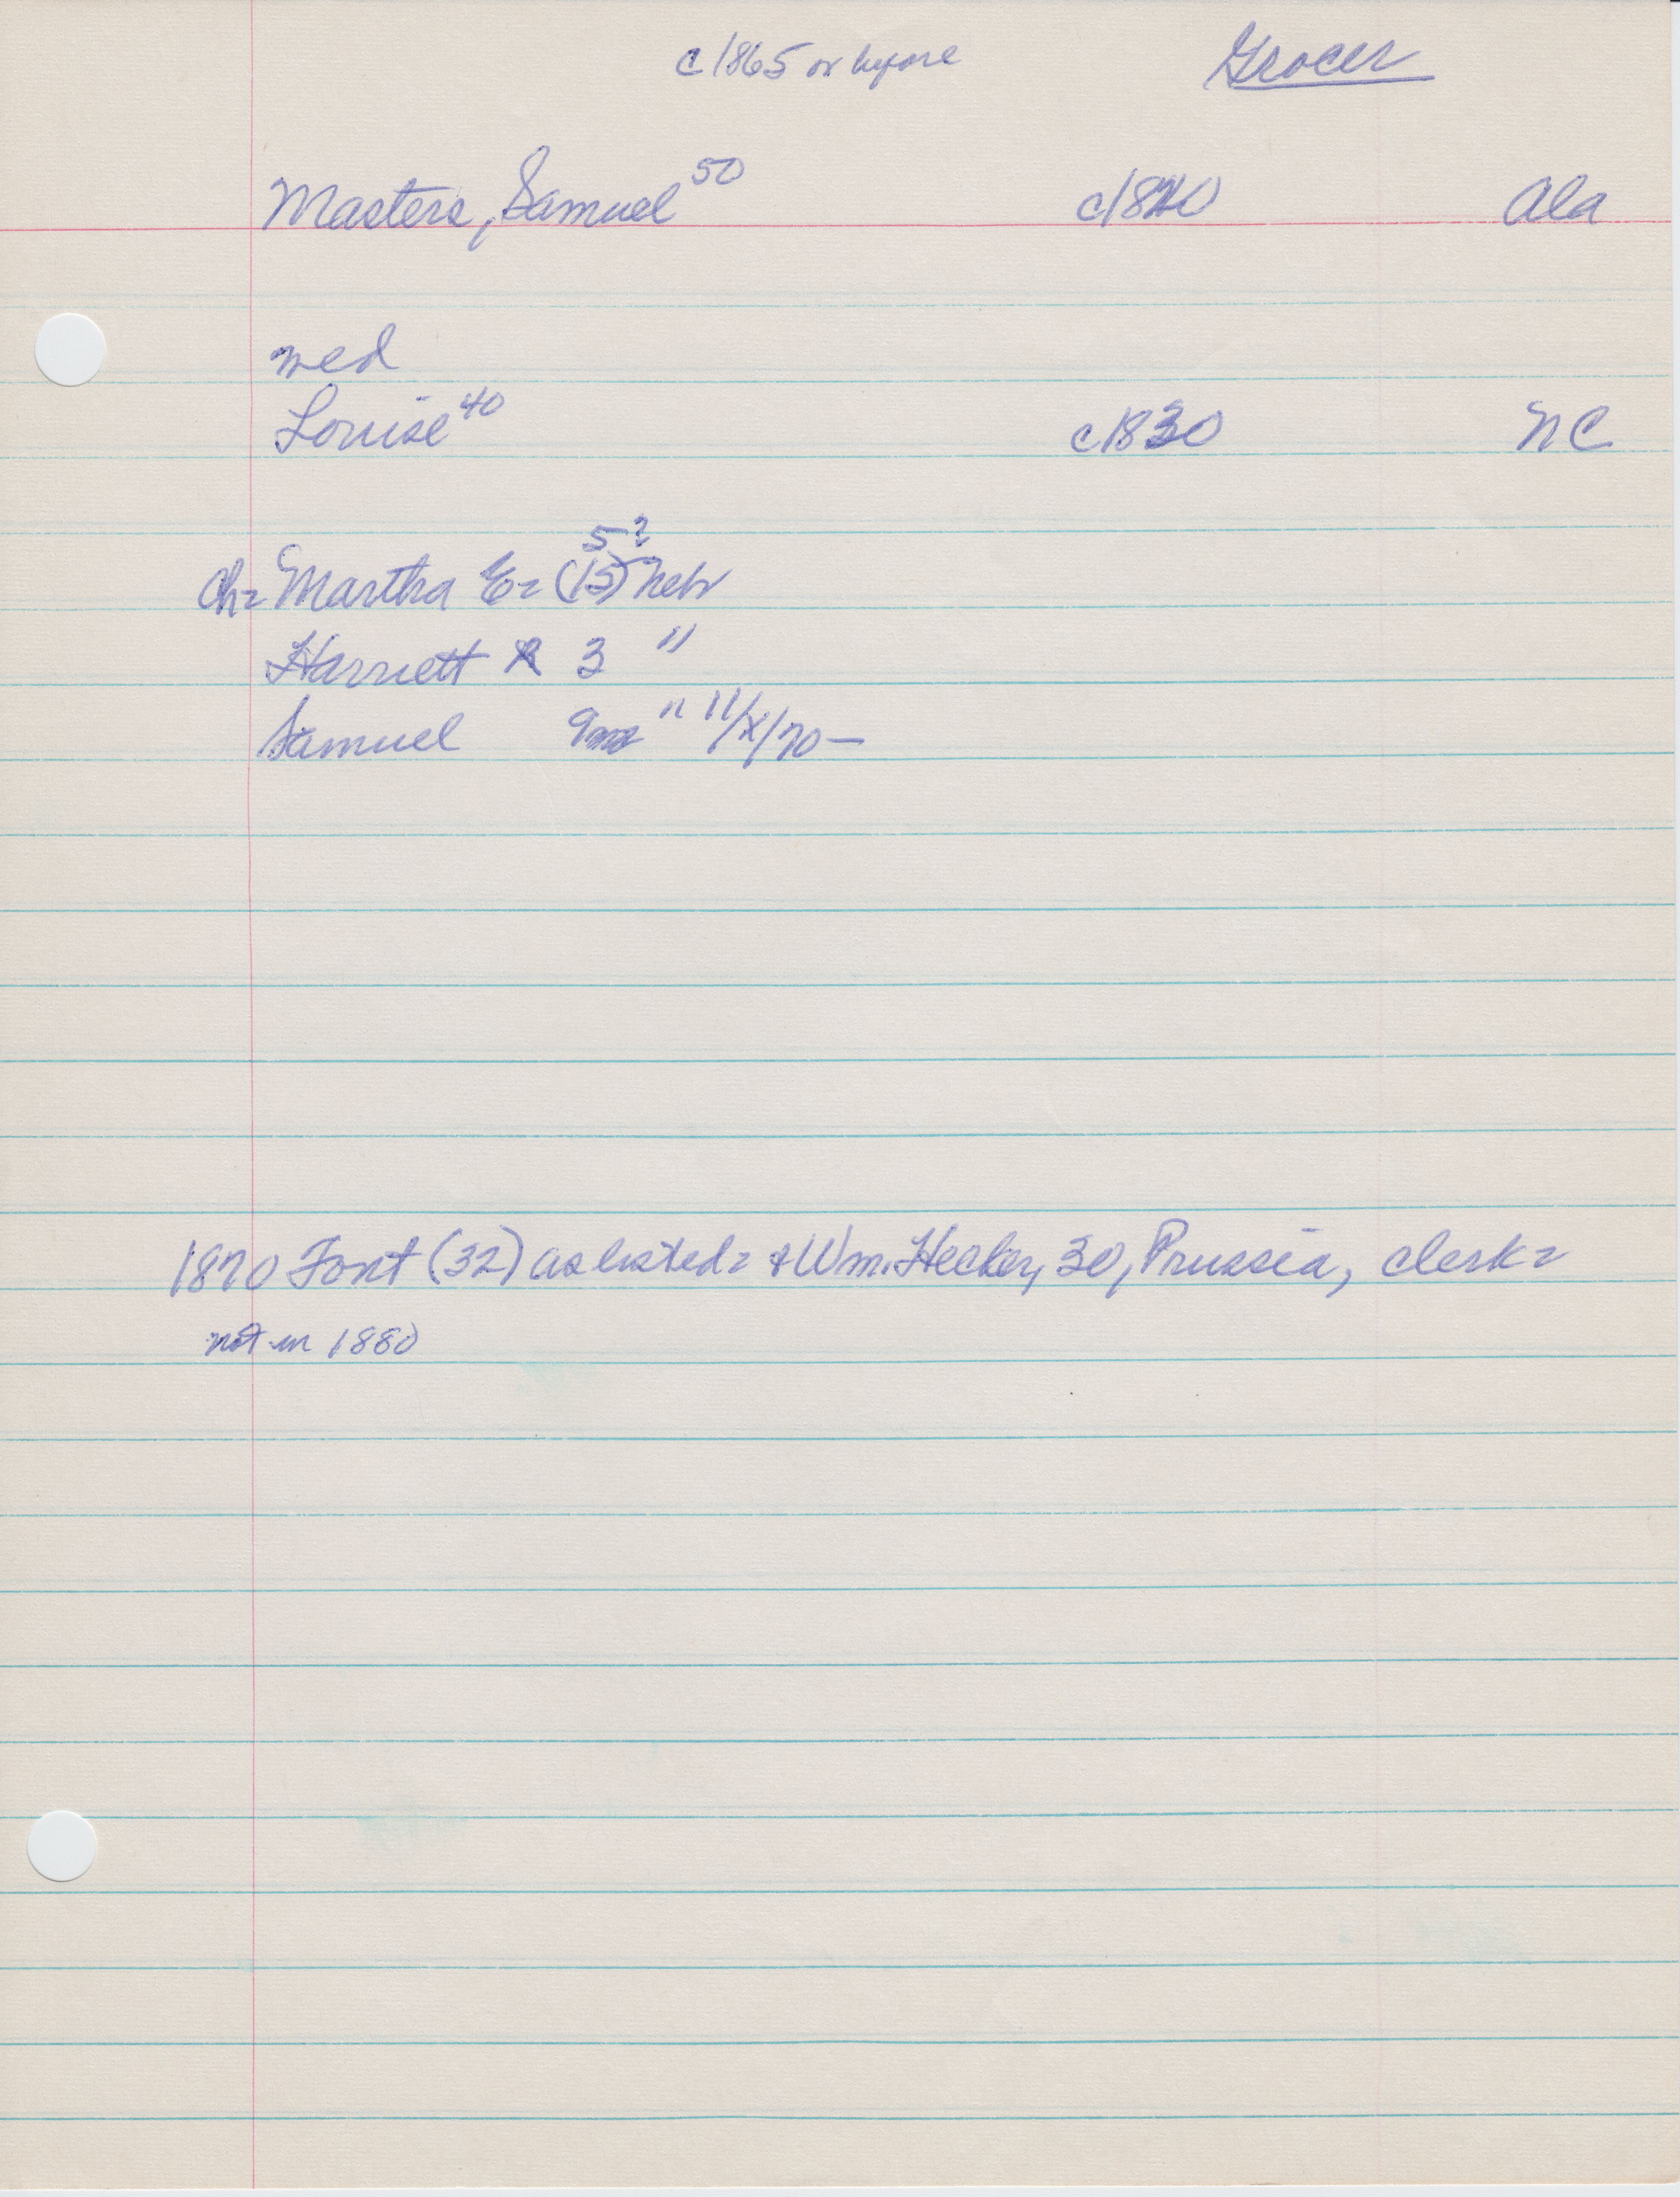 c 1865 or before Grocer
Masters, Samuel 50 c1820 Ala
med
Louise 40 c1830 NC
5?
ch= Martha E= (15) Nebr
Harriett R 3 "
Samuel 9m " 11/X/70 —
1870 Font (32) as listed= + Wm. Hecker, 30, Prussia, clerk=
not in 1880